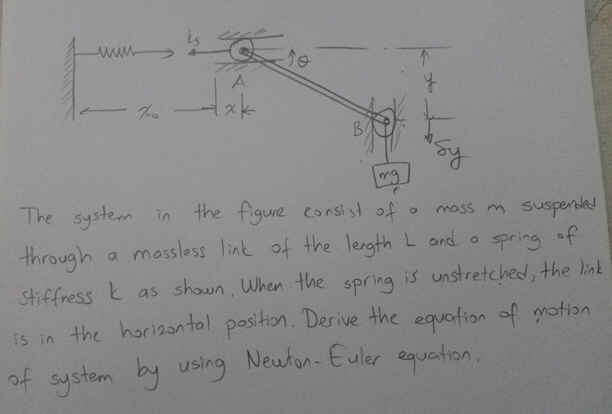 ks
θ
A
y
x₀
x
B
δy
mg
The system in the figure consist of a mass m suspended
through a massless link of the length L and a spring of
stiffness k as shown. When the spring is unstretched, the link
is in the horizontal position. Derive the equation of motion
of system by using Newton-Euler equation.